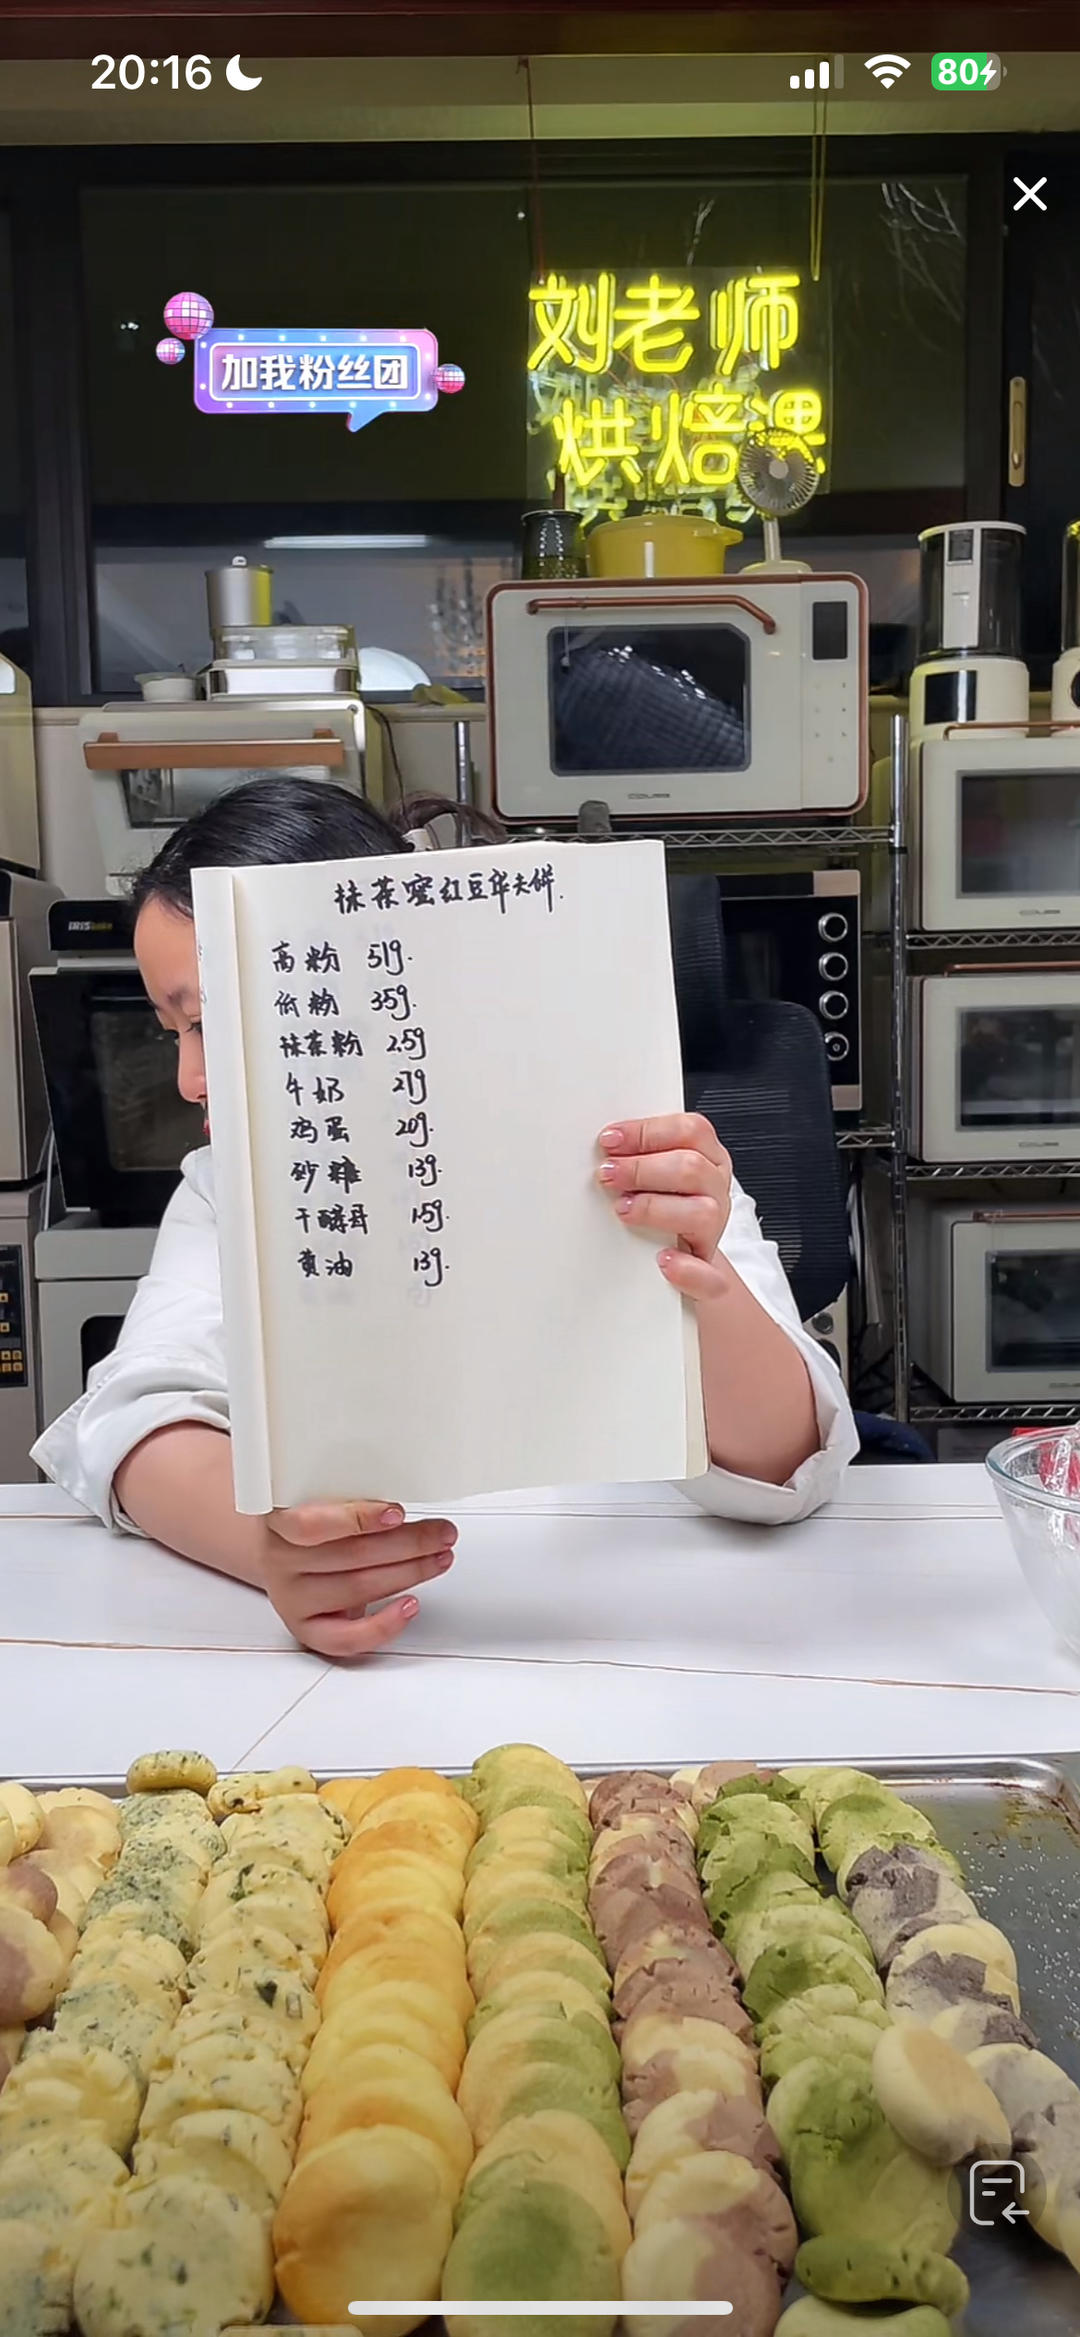 20:16
80
刘老师
烘焙课
加我粉丝团
抹茶蜜红豆华夫饼.
高粉 51g.
低粉 35g.
抹茶粉 2.5g
牛奶 27g
鸡蛋 20g.
砂糖 13g.
干酵母 1.5g.
黄油 13g.